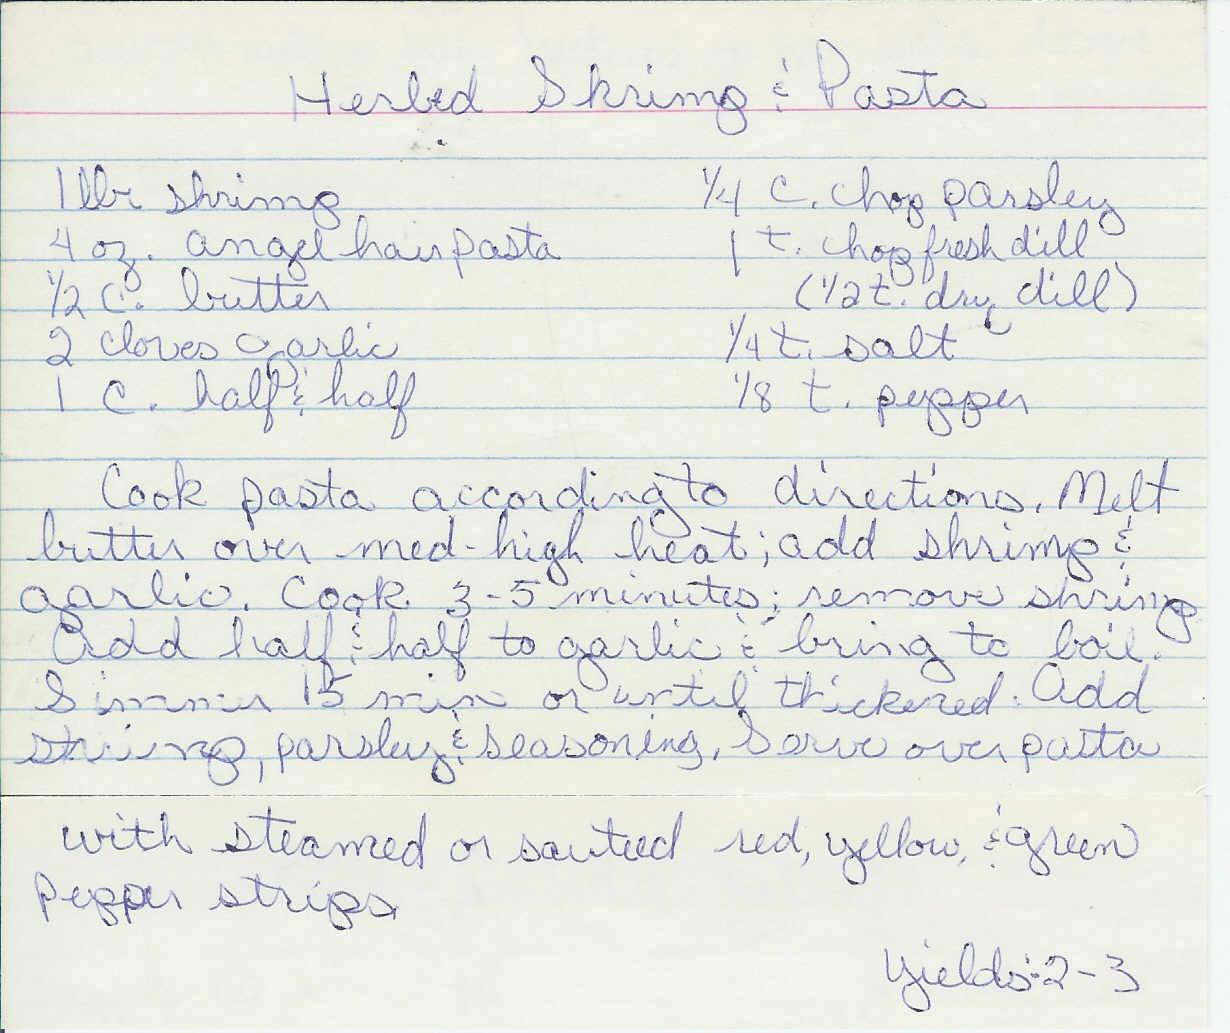 Herbed Shrimp & Pasta
1 lb shrimp
4 oz. angel hair pasta
1/2 c. butter
2 cloves garlic
1 c. half & half
1/4 c. chop parsley
1 t. chop fresh dill
(1/2 t. dry dill)
1/4 t. salt
1/8 t. pepper
Cook pasta according to directions. Melt
butter over med-high heat; add shrimp &
garlic. Cook 3-5 minutes; remove shrimp
Add half & half to garlic & bring to boil.
Simmer 15 min or until thickened. Add
shrimp, parsley & seasoning. Serve over pasta
with steamed or sauteed red, yellow, & green
pepper strips.
Yields: 2-3